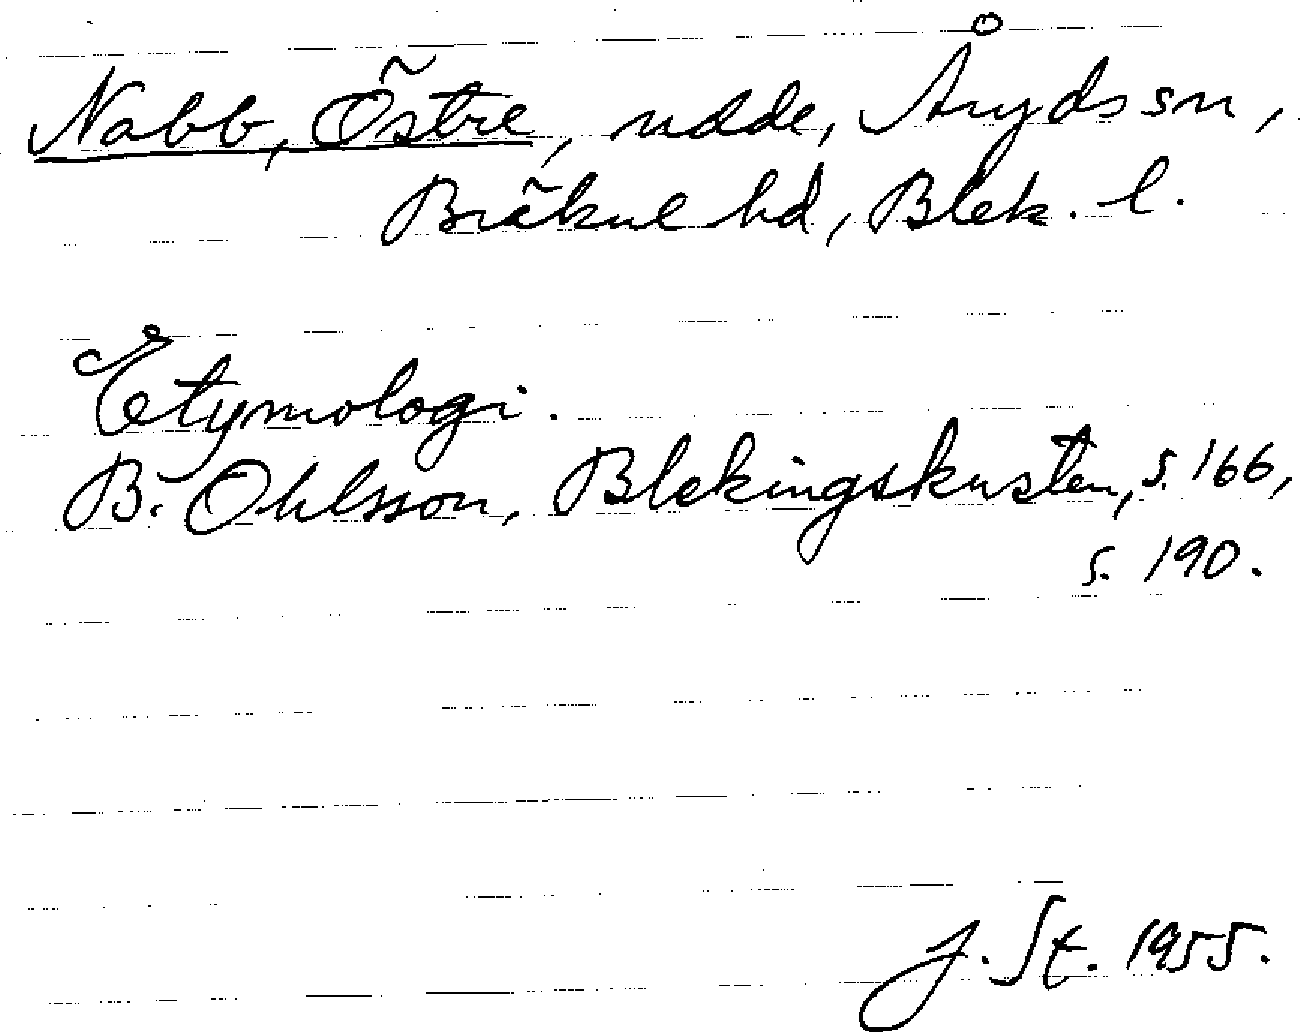 Nabb, Östre, udde, Åryds sn,
Bräkne hd, Blek. l.
Etymologi.
B. Ohlsson, Blekingskusten, s. 166,
s. 190.
J. St. 1955.